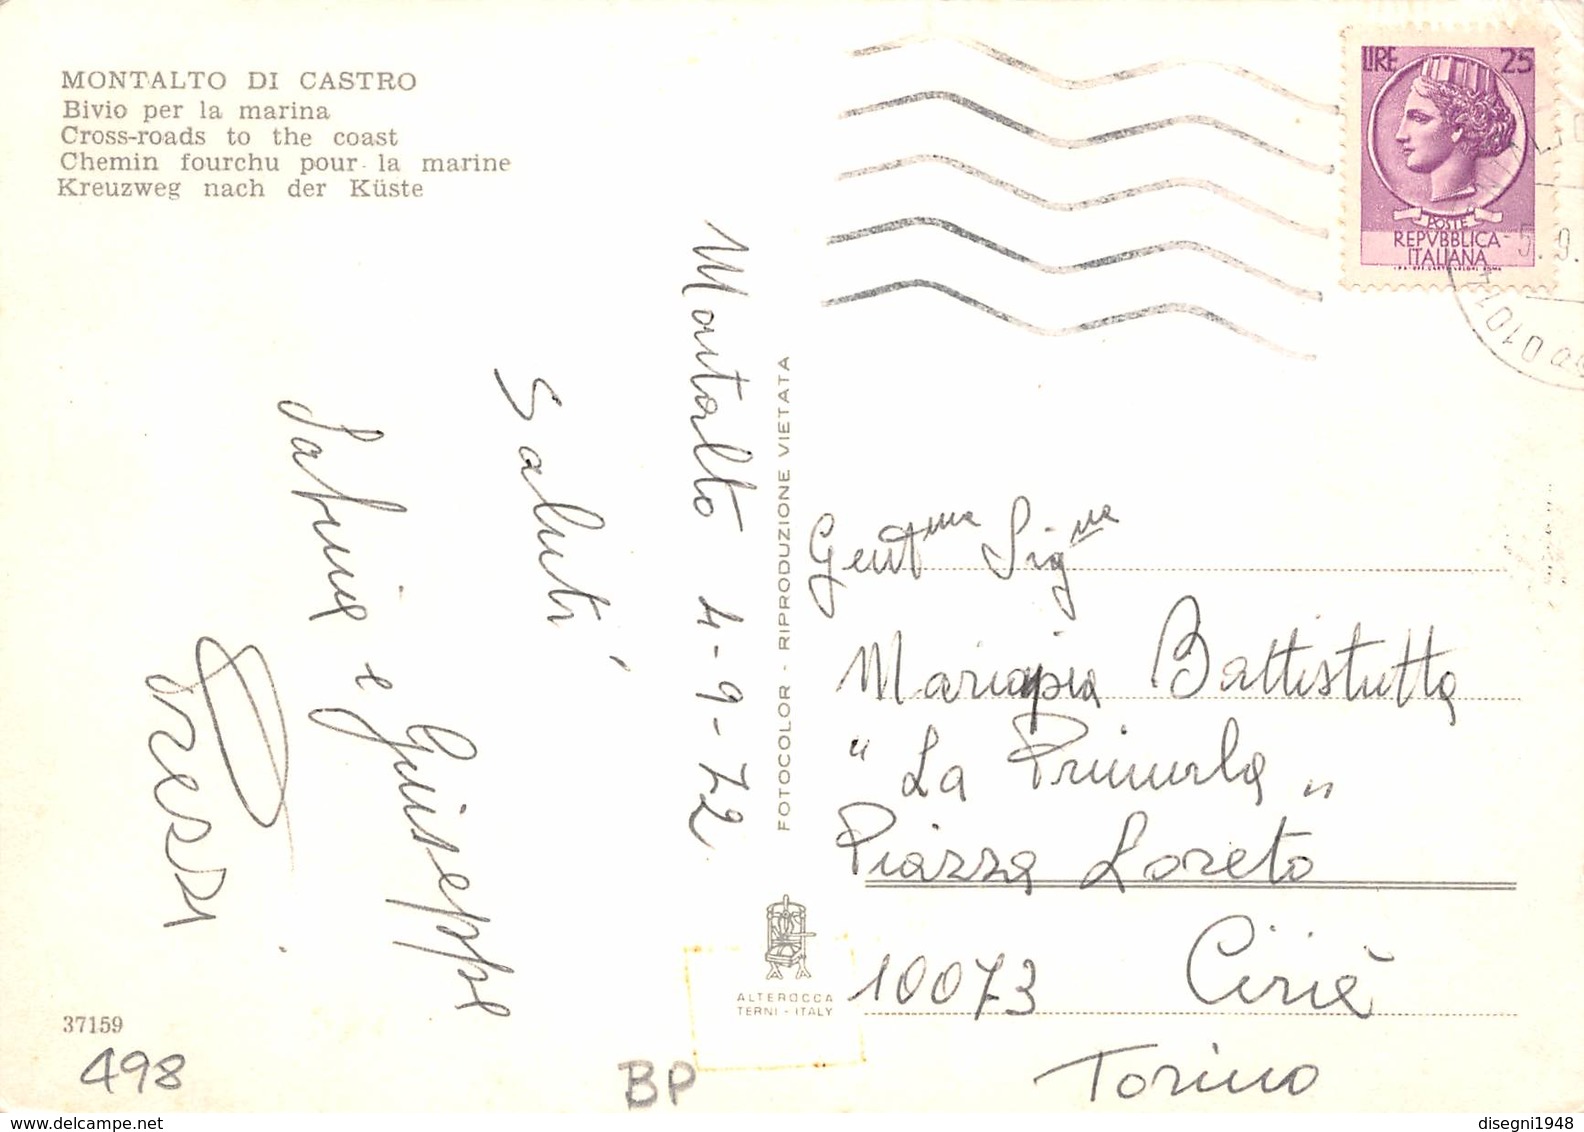 MONTALTO DI CASTRO
Bivio per la marina
Cross-roads to the coast
Chemin fourchu pour la marine
Kreuzweg nach der Küste
LIRE 25
POSTE
REPVBBLICA
ITALIANA
5.9.
Montalto 4-9-72
Saluti
e Giuseppe
FOTOCOLOR - RIPRODUZIONE VIETATA
ALTEROCCA
TERNI - ITALY
Gent.ma Sig.na
Mariapia Battistutta
"La Primula"
Piazza Loreto
10073 Ciriè
Torino
37159
498
BP
disegni1948